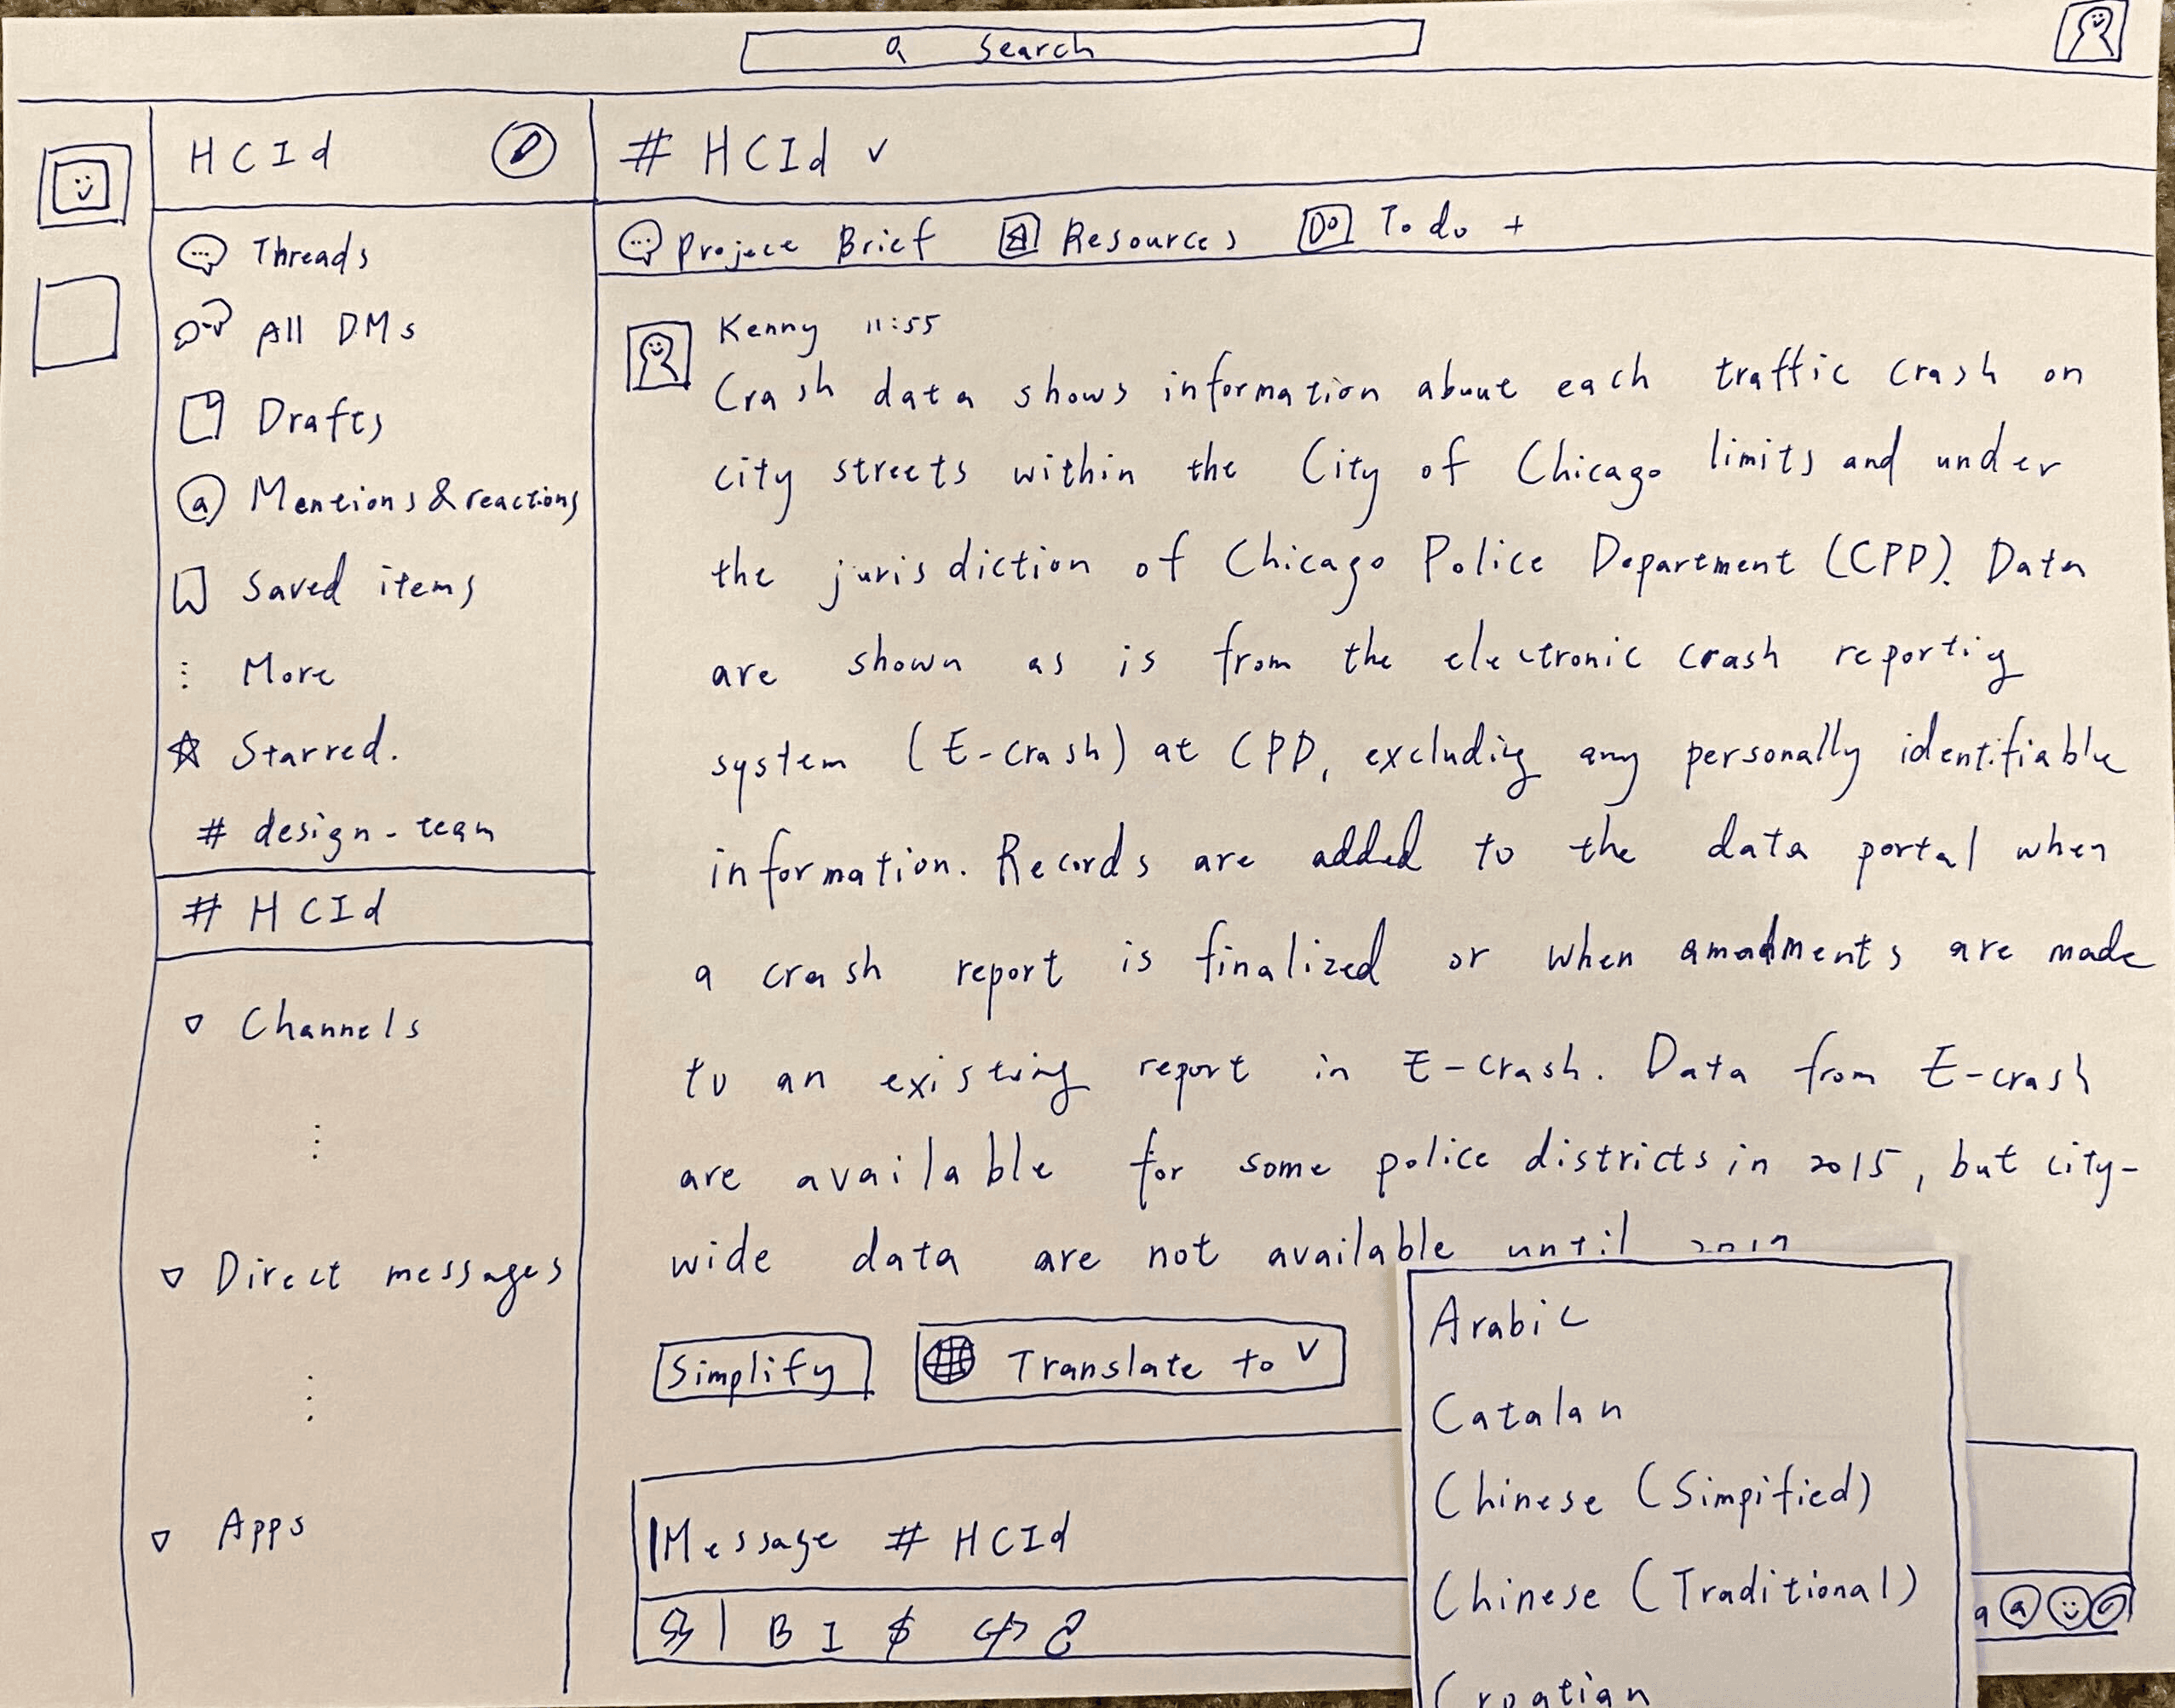 Search
HCId
# HCId
Threads
All DMs
Drafts
@ Mentions & reactions
Saved items
More
Starred.
# design-team
# HCId
Channels
Direct messages
Apps
Project Brief
Resources
Do To do +
Kenny 11:55
Crash data shows information about each traffic crash on
city streets within the City of Chicago limits and under
the jurisdiction of Chicago Police Department (CPD). Data
are shown as is from the electronic crash reportig
system (E-crash) at CPD, excludig any personally identifiable
information. Records are added to the data portal when
a crash report is finalized or when are made
to an existing report in E-crash. Data from E-crash
are available for some police districts in 2015, but city-
wide data are not available until
Simplify
Translate to
Message # HCId
B I
Arabic
Catalan
Chinese (Simpified)
Chinese (Traditional)
Croatian
a @